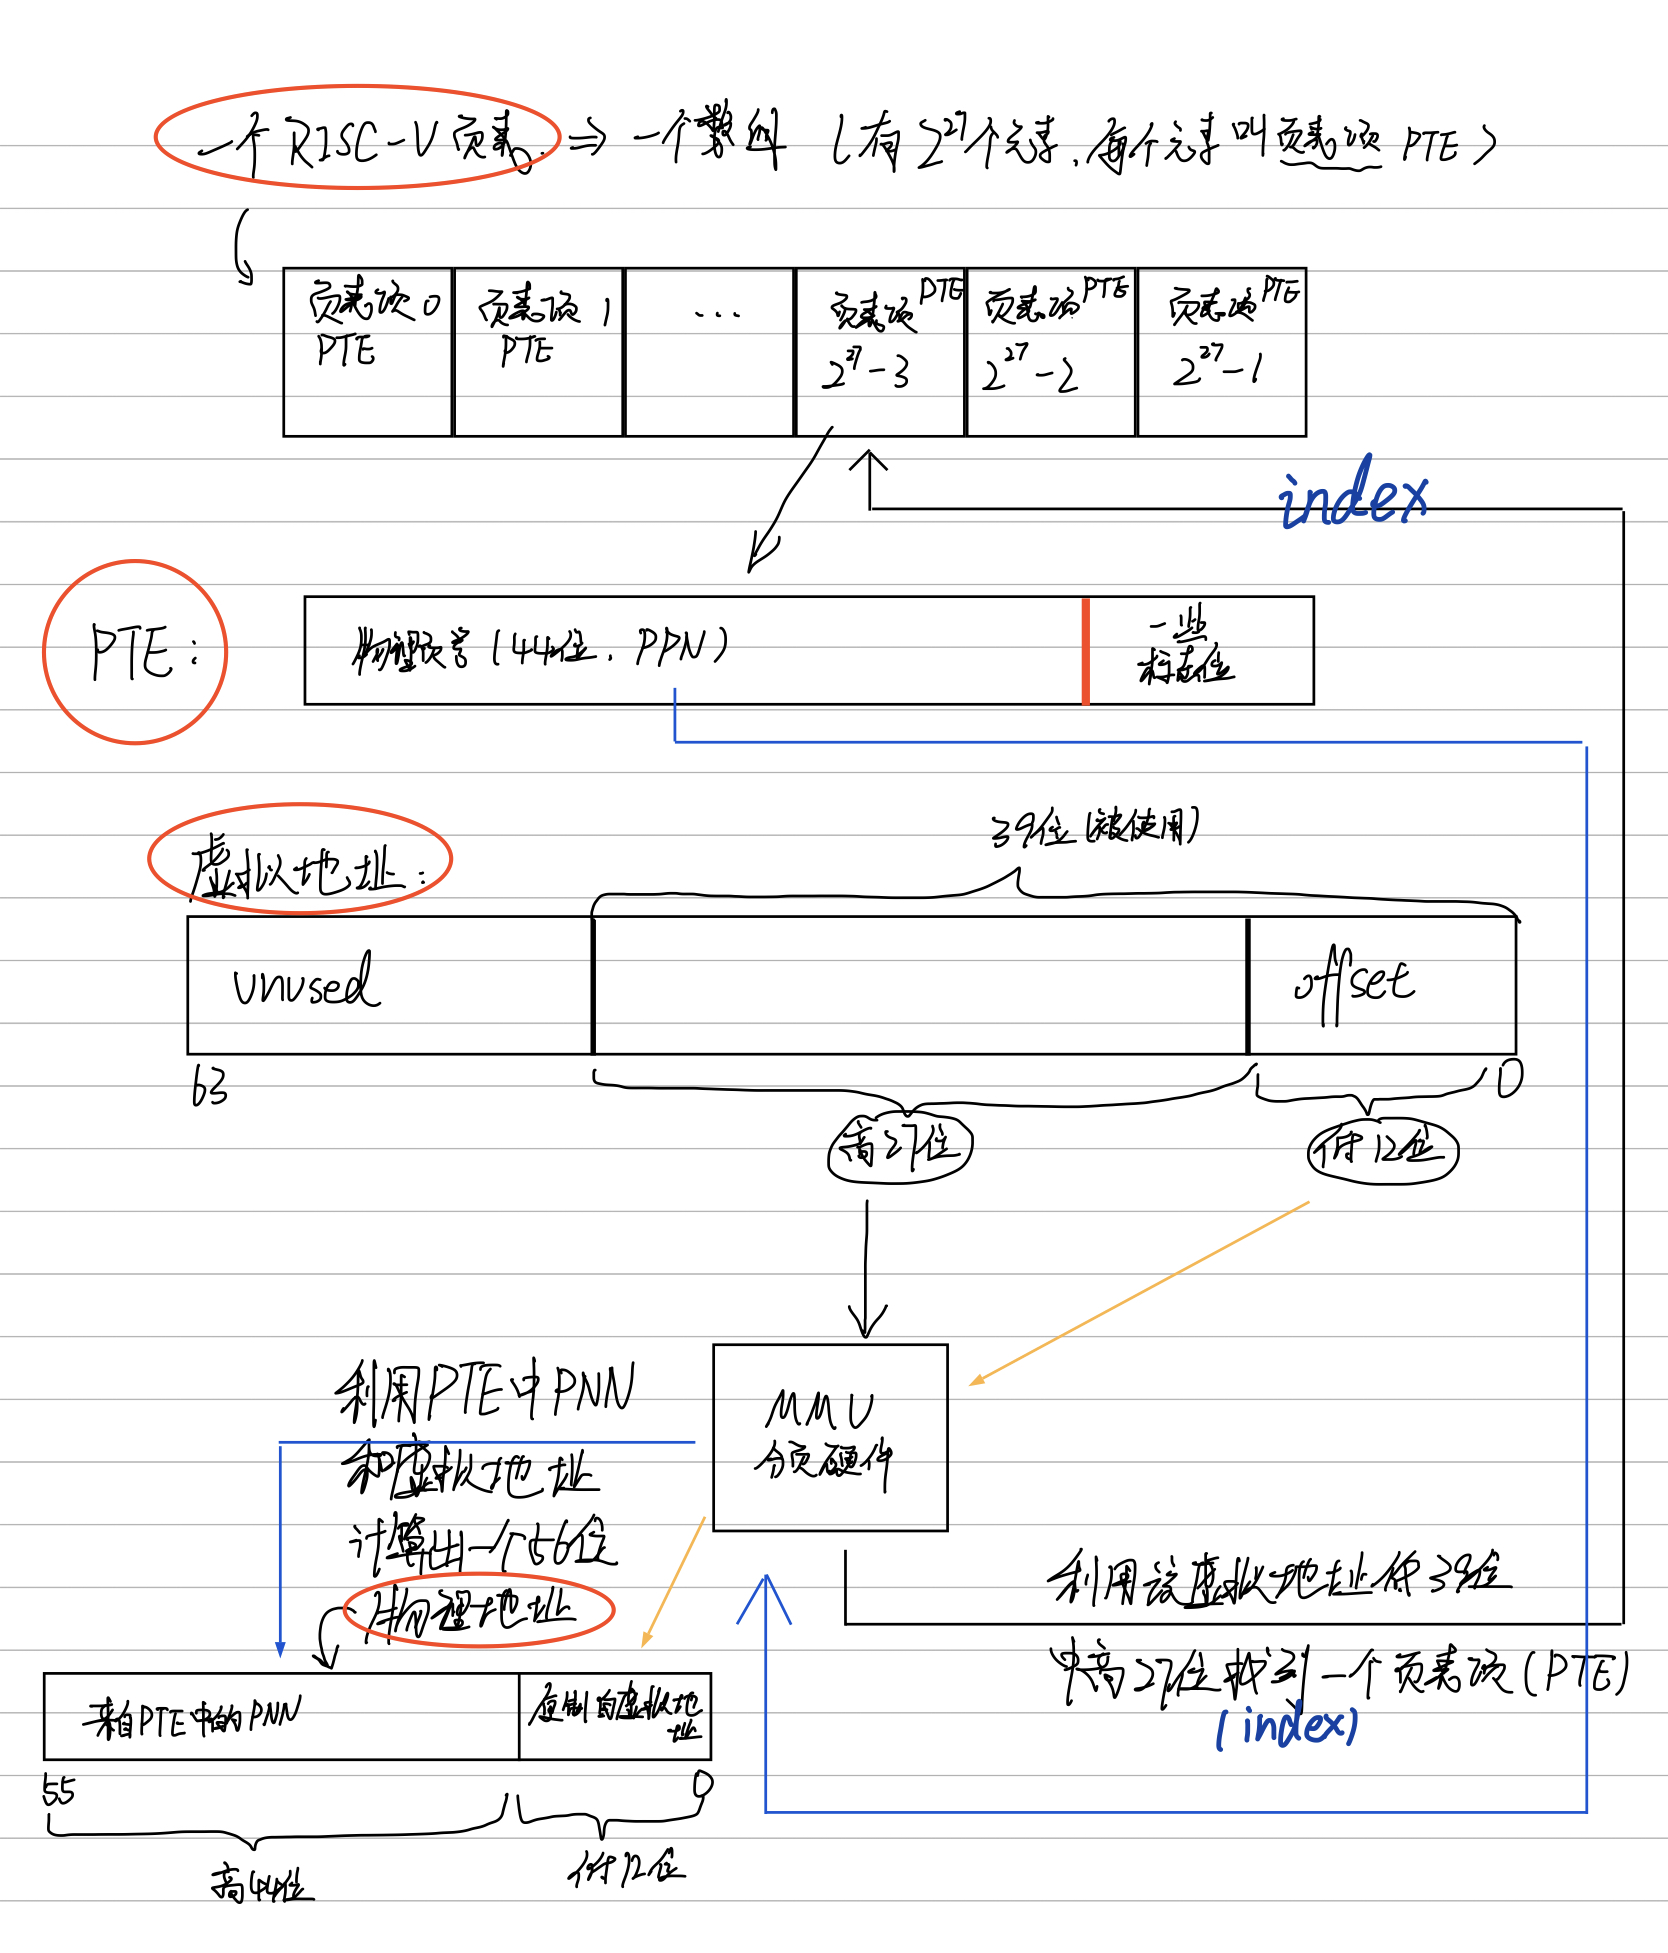 一个RISC-V页表 ⇒ 一个数组 (有2^27个元素,每个元素叫页表项 PTE)
页表项0 PTE
页表项1 PTE
...
页表项PTE 2^27-3
页表项PTE 2^27-2
页表项PTE 2^27-1
index
PTE:
物理页号(44位, PPN)
一些
标志位
39位(被使用)
虚拟地址:
unused
offset
63
0
高27位
低12位
利用PTE中PNN
和虚拟地址
计算出一个56位
物理地址
MMU
分页硬件
利用该虚拟地址低39位
中高27位找到一个页表项(PTE)
(index)
来自PTE中的PNN
复制自虚拟地址
55
0
高44位
低12位